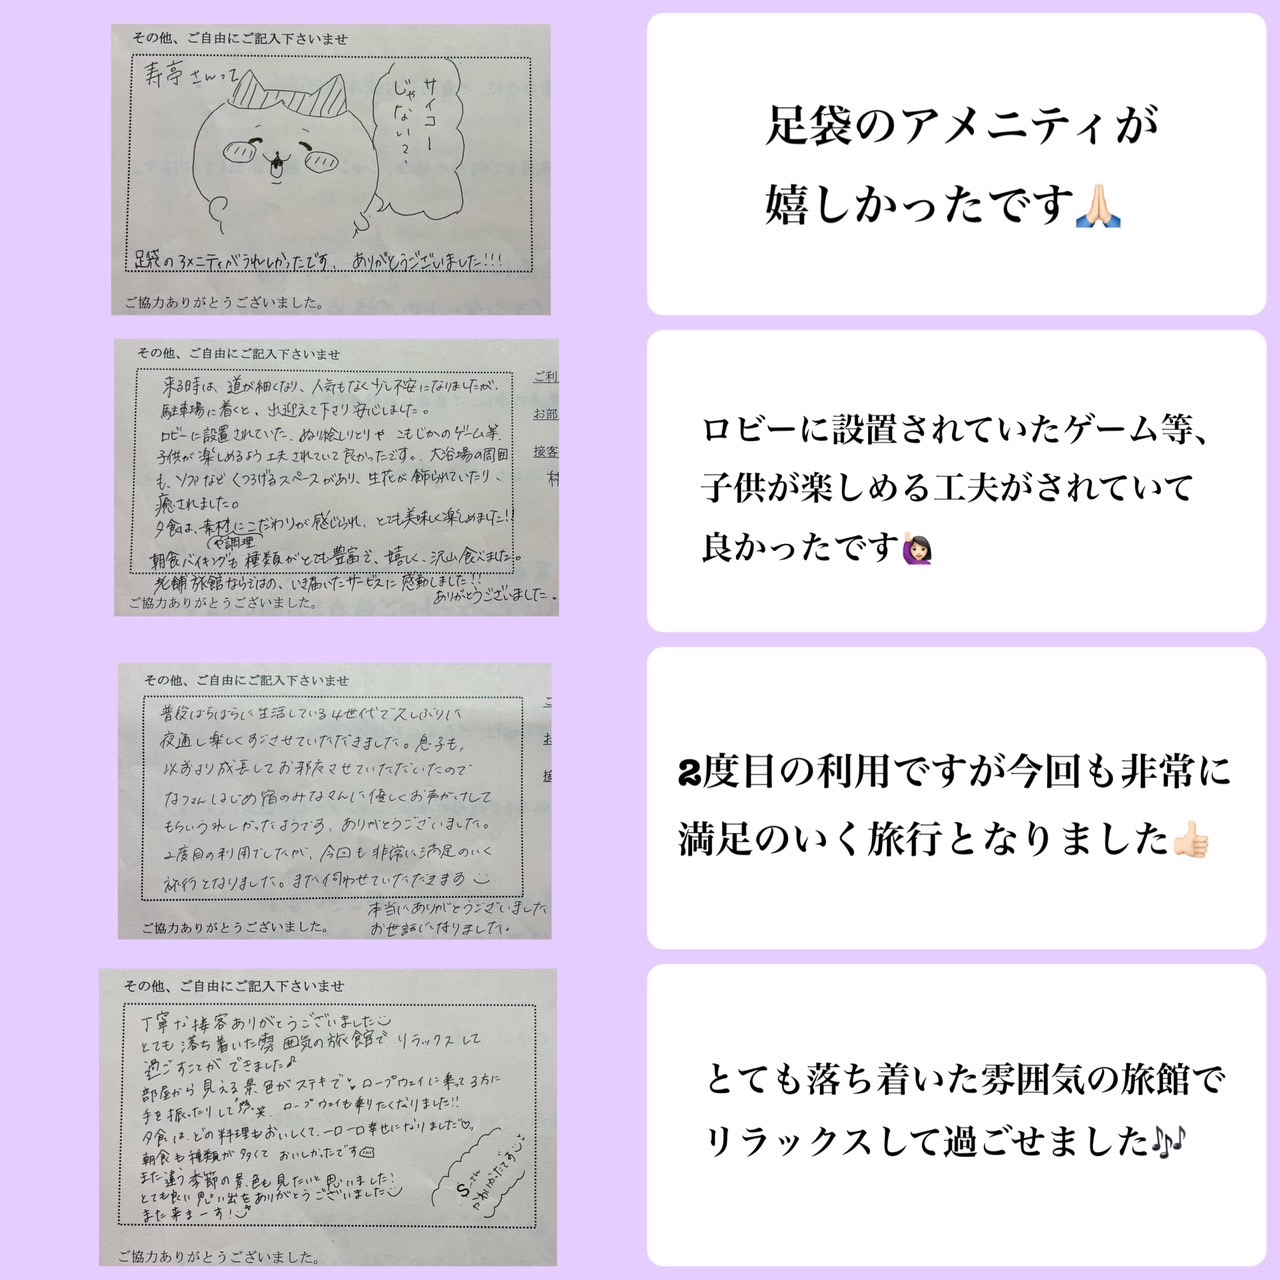 その他、ご自由にご記入下さいませ
寿亭さんって
サイコー
じゃない?
足袋のアメニティがうれしかったです。 ありがとうございました!!!
ご協力ありがとうございました。
足袋のアメニティが
嬉しかったです🙏🏻
その他、ご自由にご記入下さいませ
来る時は、道が細くなり、人気もなく少し不安になりましたが、
駐車場に着くと、出迎えて下さり安心しました。
ロビーに設置されていた、ぬり絵しりとりや こもじかのゲーム等、
子供が楽しめるよう工夫されていて良かったです。大浴場の周囲
も、ソファなどくつろげるスペースがあり、生花が飾られていたり、
癒されました。
夕食は、素材にこだわりが感じられ、とても美味しく楽しめました!!
(や調理
朝食バイキングも種類がとても豊富で、嬉しく、沢山食べました。
老舗旅館ならではの、いき届いたサービスに感動しました!!
ありがとうございました。
ご協力ありがとうございました。
ご利
お部
接客
ロビーに設置されていたゲーム等、
子供が楽しめる工夫がされていて
良かったです🙋🏻‍♀️
その他、ご自由にご記入下さいませ
普段ばらばらに生活している4世代で久しぶりに
夜通し楽しくすごさせていただきました。息子も、
以前より成長してお邪魔させていただいたので
なつさんはじめ宿のみなさんに優しくお声がけして
もらいうれしかったようです。ありがとうございました。
2度目の利用でしたが、今回も非常に満足のいく
旅行となりました。また伺わせていただきます
本当にありがとうございました
お世話になりました。
ご協力ありがとうございました。
2度目の利用ですが今回も非常に
満足のいく旅行となりました👍🏻
その他、ご自由にご記入下さいませ
丁寧な接客ありがとうございました
とても落ち着いた雰囲気の旅館で リラックスして
過ごすことができました♪
部屋から見える景色がステキで、ロープウェイに乗ってる方に
手を振ったりして 笑 ロープウェイも乗りたくなりました!!
夕食は、どの料理もおいしくて、一口一口幸せになりました♡
朝食も種類が多くて おいしかったです
また違う季節の景色も見たいと思いました!
とても良い思い出をありがとうございました
また来まーす!
Sさん
かわいかったです
ご協力ありがとうございました。
とても落ち着いた雰囲気の旅館で
リラックスして過ごせました🎶